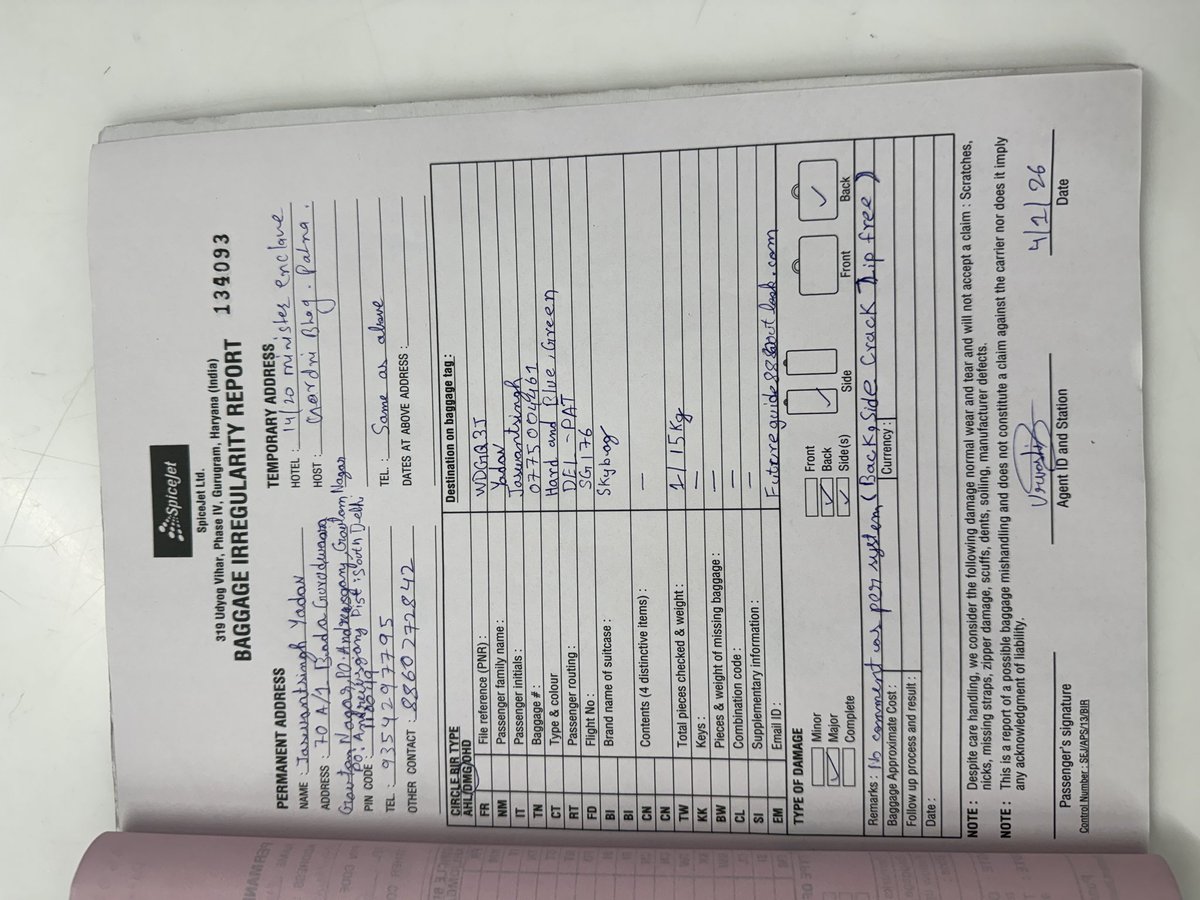 SpiceJet
SpiceJet Ltd.
319 Udyog Vihar, Phase IV, Gurugram, Haryana (India)
BAGGAGE IRREGULARITY REPORT 134093
PERMANENT ADDRESS
NAME : Jaswantsingh Yadav
ADDRESS : 70 A/1 Bada Gurudwara
Gautam Nagar, PO. Andrewsganj, Gautam Nagar
PO. Andrewsganj Dist: South Delhi
PIN CODE : 110049
TEL : 9354297795
OTHER CONTACT : 8860272842
TEMPORARY ADDRESS
HOTEL : 14/20 minister enclave
HOST : Gardni Bhag. Patna.
TEL : Same as above
DATES AT ABOVE ADDRESS :
CIRCLE BIR TYPE
AHL/DMG/OHD
Destination on baggage tag :
FR File reference (PNR) : WDGQ3J
NM Passenger family name : Yadav
IT Passenger initials : Jaswantsingh
TN Baggage # : 0775004461
CT Type & colour Hard and Blue, Green
RT Passenger routing : DEL - PAT
FD Flight No : SG176
BI Brand name of suitcase : Skybag
BI
CN Contents (4 distinctive items) : —
CN
TW Total pieces checked & weight : 1/15Kg
KK Keys : —
BW Pieces & weight of missing baggage : —
CL Combination code : —
SI Supplementary information : —
EM Email ID :
TYPE OF DAMAGE
Minor
Major
Complete
Front
Back
Side(s)
Side
Front
Back
Remarks : comment as per system (Back, Side Crack Zip free)
Baggage Approximate Cost : Currency :
Follow up process and result :
Date :
NOTE : Despite care handling, we consider the following damage normal wear and tear and will not accept a claim : Scratches,
nicks, missing straps, zipper damage, scuffs, dents, soiling, manufacturer defects.
NOTE : This is a report of a possible baggage mishandling and does not constitute a claim against the carrier nor does it imply
any acknowledgment of liability.
4/1/26
Passenger's signature Agent ID and Station Date
Control Number : SEJ/APS/13/BIR